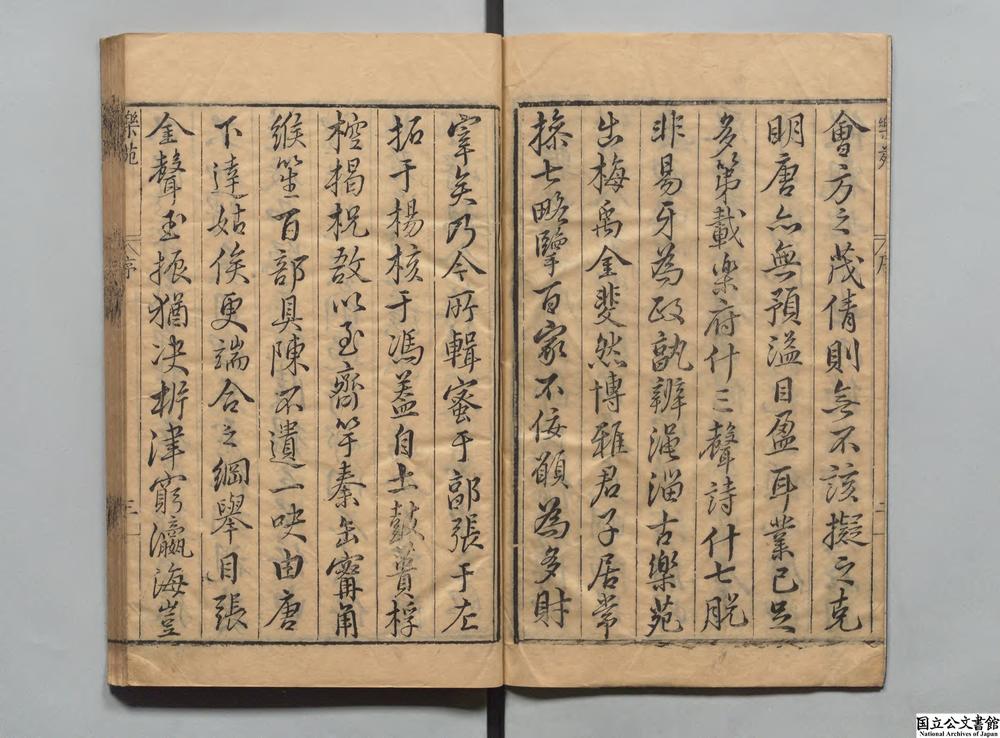 會方之茂倩則無不該擬之克
明唐亦無預溢目盈耳業已足
多第載樂府什三聲詩什七脫
非易牙為政孰辨澠淄古樂苑
出梅禹金斐然博雅君子居常
搽七略擥百家不佞顧為多財
宰矣乃今所輯蜜于郭張于左
拓于楊核于馮蓋自土鼓蕢桴
椌楬柷敔以至齊竽秦缶甯角
緱笙百部具陳不遺一吷由唐
下達姑俟更端合之綱舉目張
金聲玉振猶决析津窮瀛海豈
樂苑
序
三
国立公文書館
National Archives of Japan